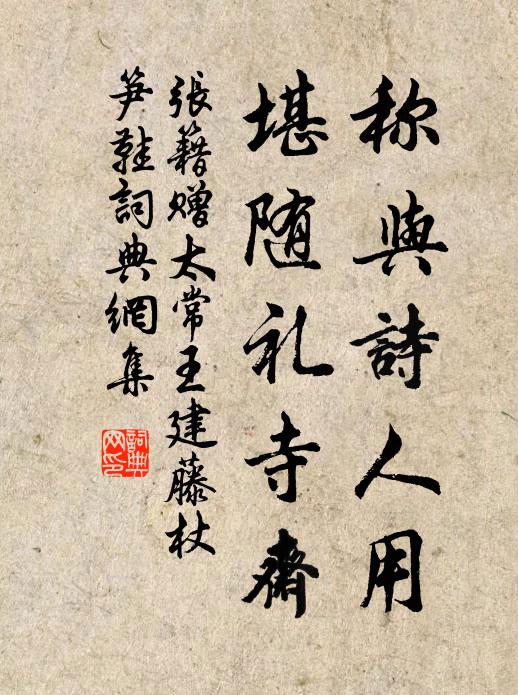 称與詩人用
堪随礼寺齋
張籍贈太常王建藤杖
笋鞋詞典網集
詞典
网印